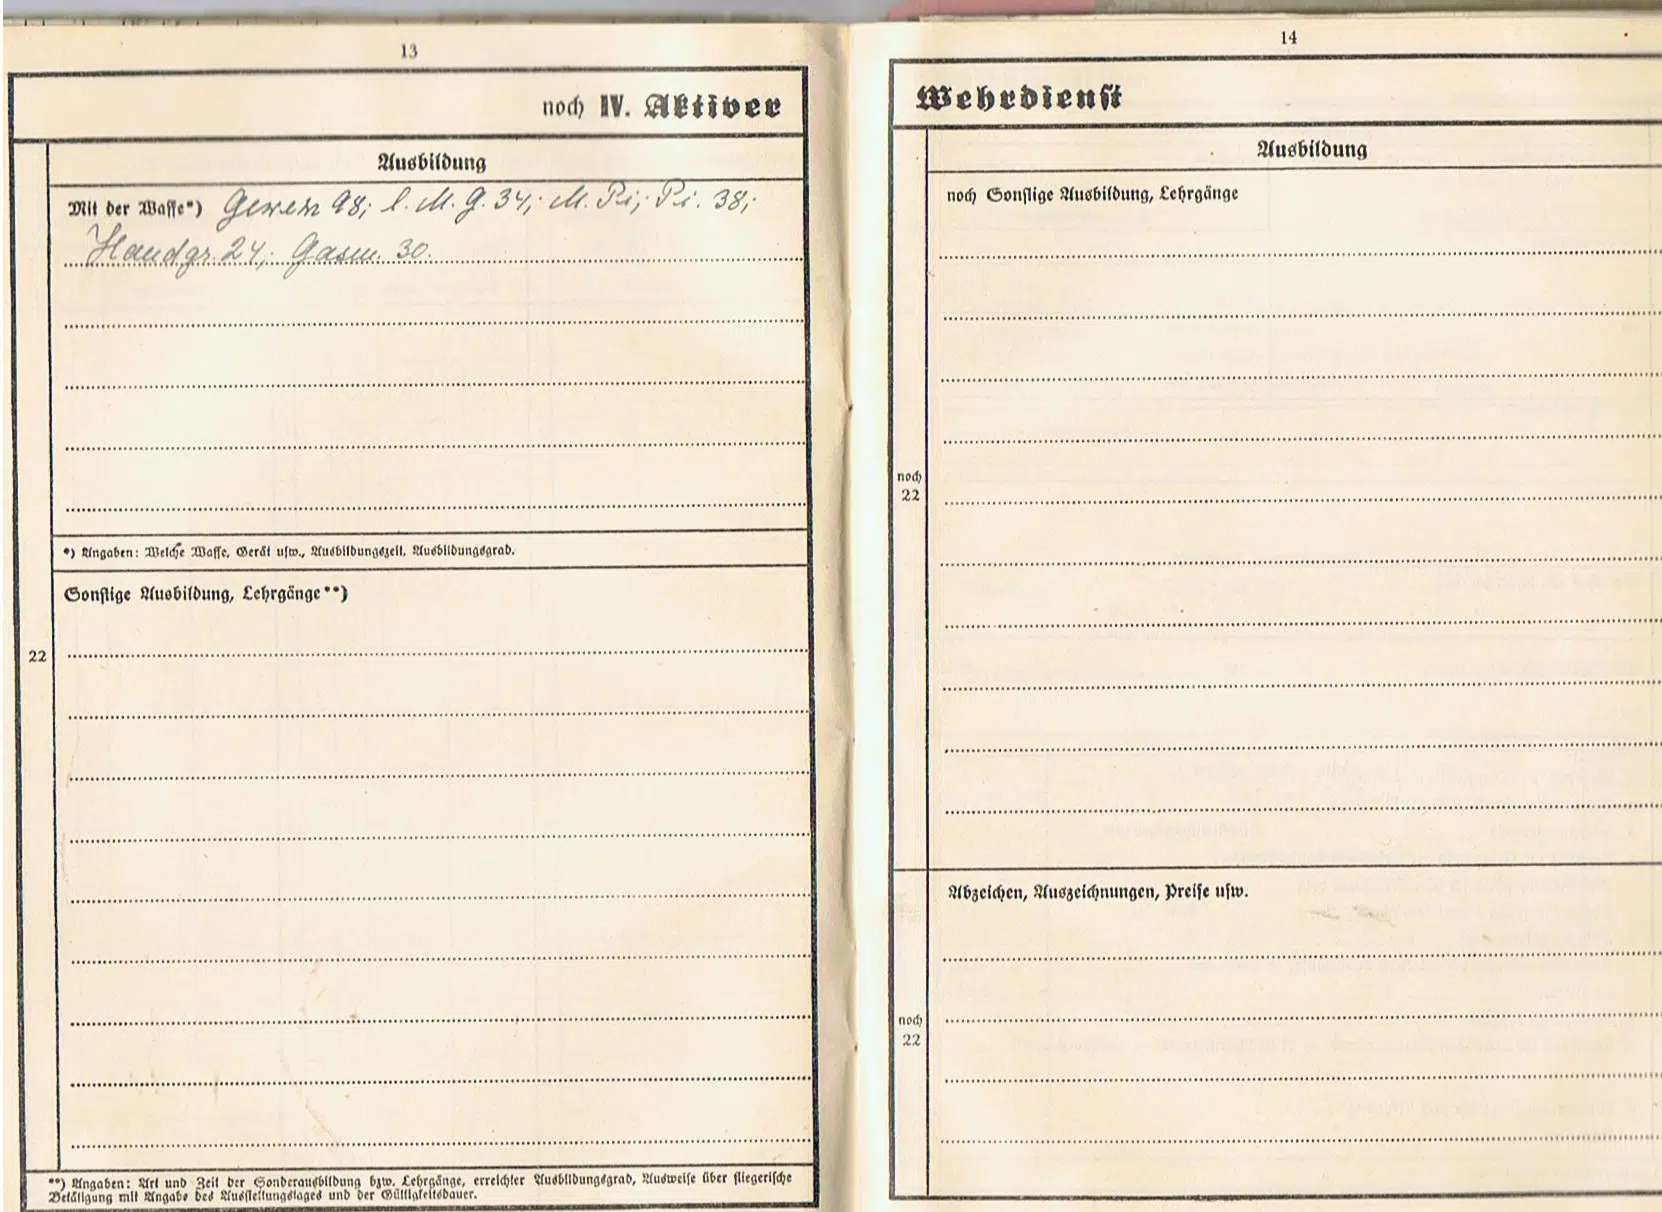 13
noch IV. Aktiver
Ausbildung
Mit der Waffe*) Gewehr 98; l. M. G. 34; M. Pi; Pi. 38;
Handgr. 24; Gasm. 30.
*) Angaben: Welche Waffe, Gerät usw., Ausbildungszeit, Ausbildungsgrad.
Sonstige Ausbildung, Lehrgänge**)
22
**) Angaben: Art und Zeit der Sonderausbildung bzw. Lehrgänge, erreichter Ausbildungsgrad, Ausweise über fliegerische
Betätigung mit Angabe des Ausstellungstages und der Gültigkeitsdauer.
14
Wehrdienst
Ausbildung
noch Sonstige Ausbildung, Lehrgänge
noch
22
Abzeichen, Auszeichnungen, Preise usw.
noch
22